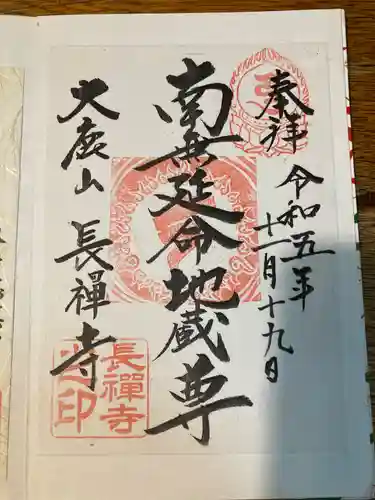 奉拝
令和五年
十一月十九日
南無延命地蔵尊
大鹿山 長禅寺
長禪寺
之印